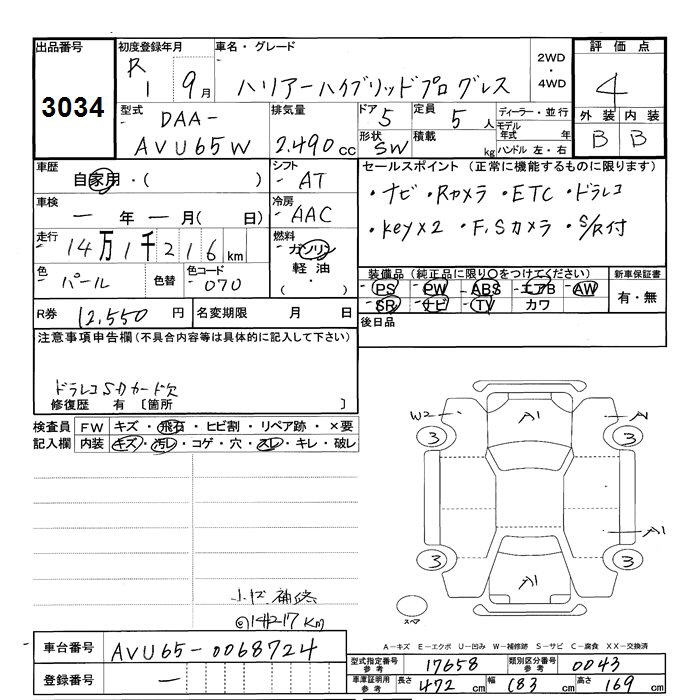 出品番号 初度登録年月 車名・グレード 2WD・4WD 評価点
3034 R1 9月 ハリアーハイブリッドプログレス 4
型式 DAA- 排気量 ドア 5 定員 5人 ディーラー・並行 外装 内装
AVU65W 2.490cc 形状 SW 積載 kg モデル年式 年 B B
ハンドル 左・右
車歴 自家用・( ) シフト AT セールスポイント (正常に機能するものに限ります)
車検 ー年ー月( 日) 冷房 AAC ・ナビ・Rカメラ・ETC・ドラレコ
走行 14万1千216km 燃料 ガソリン ・Key×2・F,Sカメラ・S/R付
軽油
色 パール 色替 色コード 070 ( ・ ) 装備品(純正品に限り○をつけてください) 新車保証書
PS PW ABS エアB AW 有・無
SR ナビ TV カワ
R券 12,550円 名変期限 月 日 後日品
注意事項申告欄(不具合内容等は具体的に記入して下さい)
ドラレコSDカード欠
修復歴 有 [箇所 ]
検査員 FW キズ・飛石・ヒビ割・リペア跡・×要
記入欄 内装 キズ・汚レ・コゲ・穴・スレ・キレ・破レ
W2 A1 A
3 3
A1
3 3
A1
スペア
@141217km
A-キズ E-エクボ U-凹み W-補修跡 S-サビ C-腐食 XX-交換済
車台番号 AVU65-0068724
型式指定番号 参考 17658 類別区分番号 参考 0043
登録番号 ー 車庫証明用 参考 長さ 472cm 幅 183cm 高さ 169cm